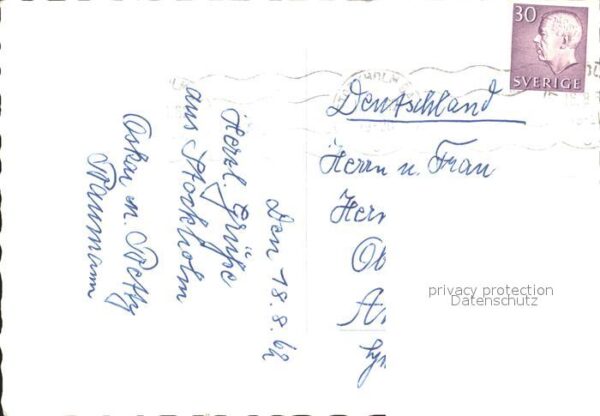 Den 18.8.62
Herzl. Grüße
aus Stockholm
Oskar u. Betty
30
SVERIGE
Deutschland
Herrn u. Frau
Her
Ob
A
privacy protection
Datenschutz